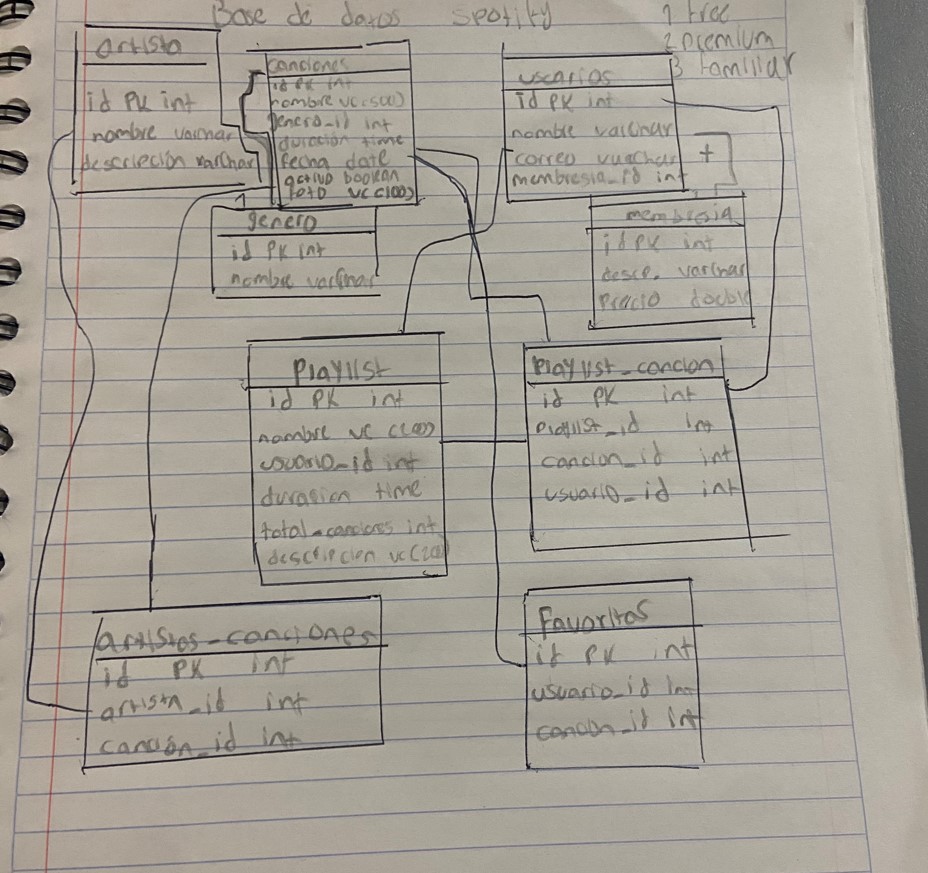 Base de datos spotify
1 free
2 premium
3 familiar
artista
id PK int
nombre varchar
descripcion varchar
canciones
id PK int
nombre vc(500)
genero_id int
duración time
fecha date
activo boolean
foto vc(100)
usuarios
id PK int
nombre varchar
correo varchar
membresia_id int
+
genero
id PK int
nombre varchar
1
membresia
id PK int
desc. varchar
precio double
Playlist
id PK int
nombre vc(100)
usuario_id int
durasion time
total_canciones int
descripcion vc(200)
Playlist_cancion
id PK int
playlist_id int
cancion_id int
usuario_id int
artistas_canciones
id PK int
artista_id int
canción_id int
Favoritos
id PK int
usuario_id int
canción_id int